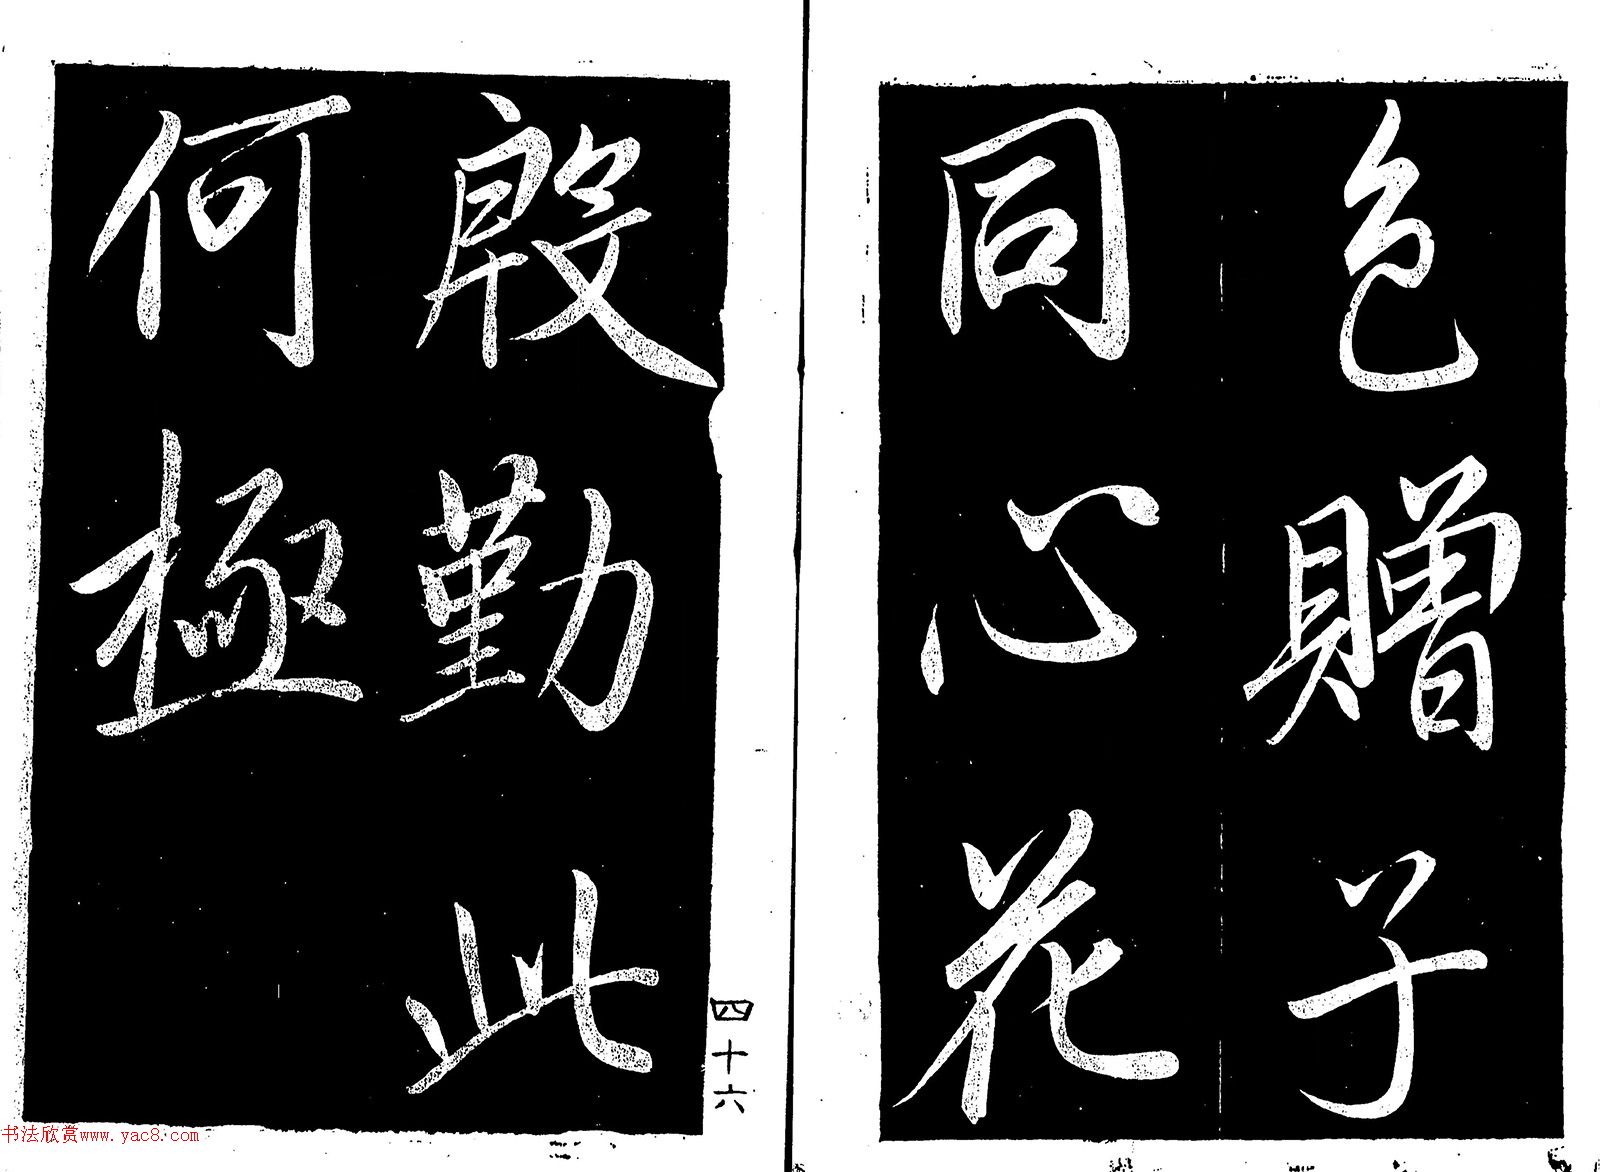 色贈子
同心花
殷勤此
何極
四十六
书法欣赏www.yac8.com